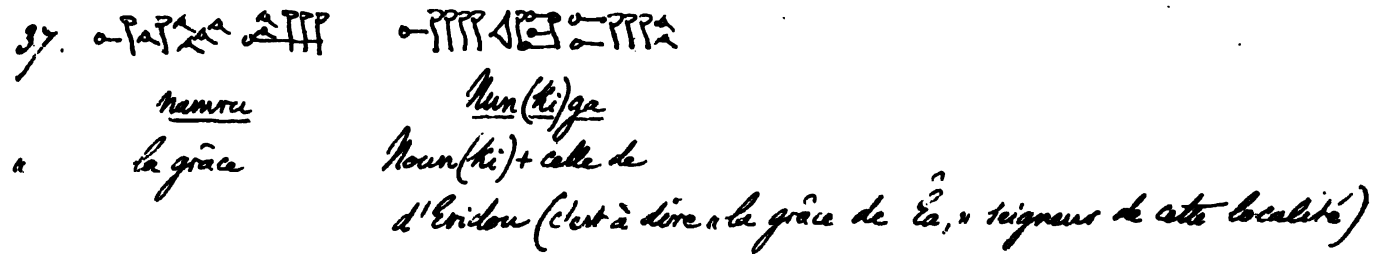 37.
namru Nun(ki)ga
" la grâce Noun(ki) + celle de
d'Eridou (c'est à dire « la grâce de Êa, » seigneur de cette localité)